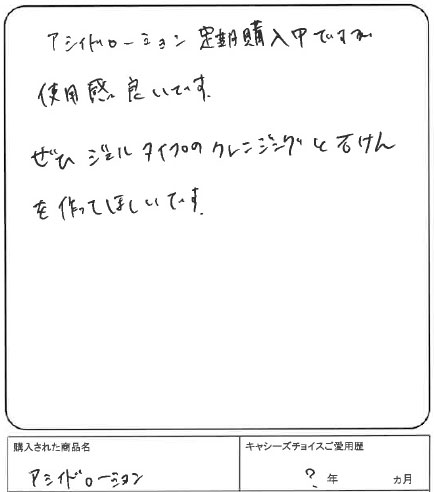 アシィドローション定期購入中ですが
使用感良いです。
ぜひジェルタイプのクレンジングと石けん
を作ってほしいです。
購入された商品名
キャシーズチョイスご愛用歴
アシィドローション
? 年 ヵ月